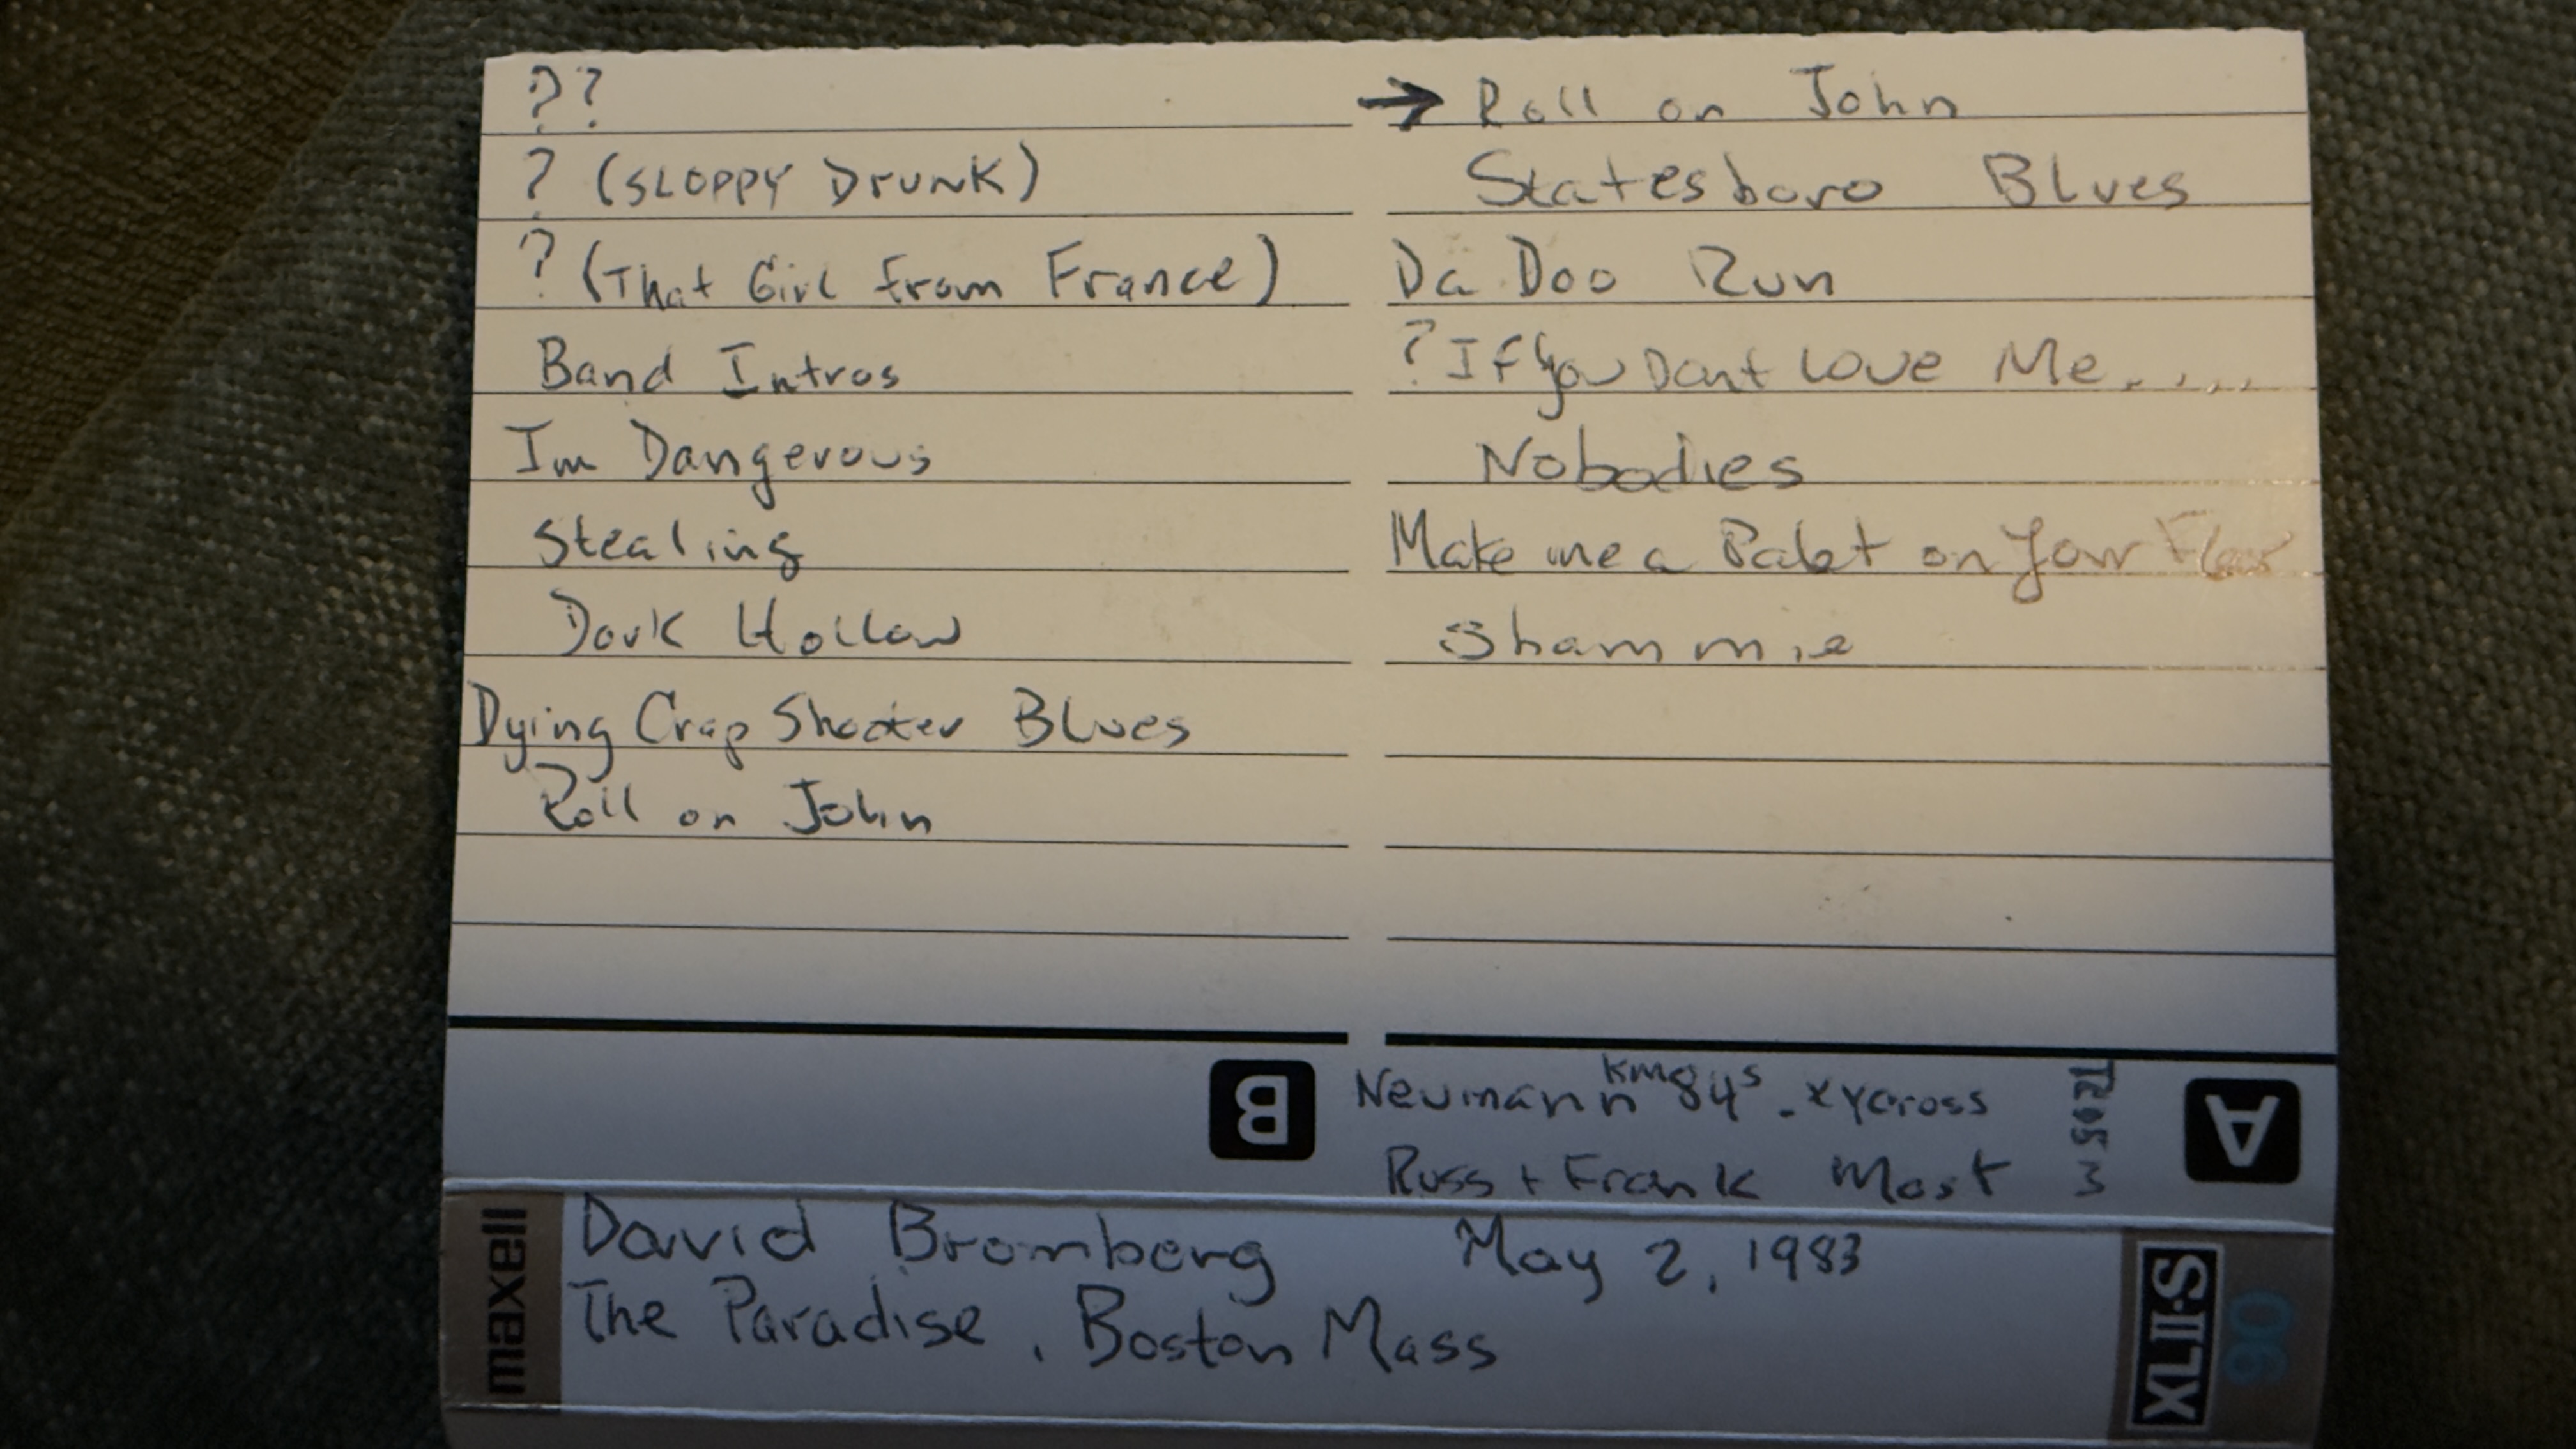 ??
? (SLOPPY Drunk)
? (That Girl from France)
Band Intros
Im Dangerous
Stealing
Dark Hollow
Dying Crap Shooter Blues
Roll on John
→ Roll on John
Statesboro Blues
Da Doo Run
? If you Dont Love Me.....
Nobodies
Make me a Palet on your Floor
Shammie
B
Neumann km84s - xycross
Russ + Frank Most
A
maxell
David Bromberg May 2, 1983
The Paradise, Boston Mass
XLII-S
90